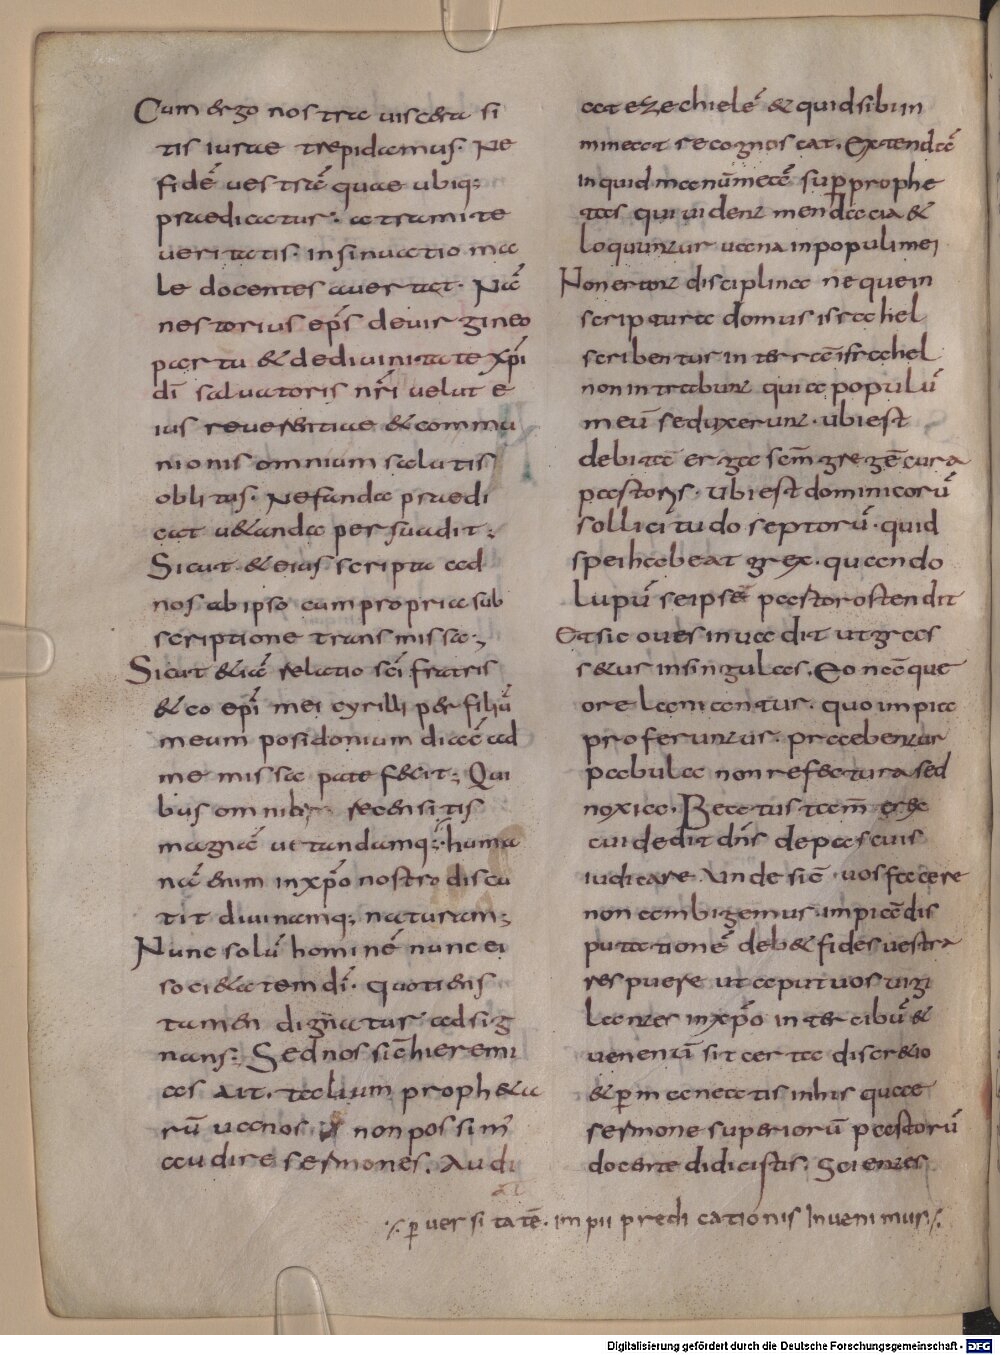 Cum & ergo nostra viscera si
tis iurae trepidamus. Ne
fidē uestrā quae ubiq;
praedicatur. atramite
ueritatis. insinuatio ma
le docentes auertat. Nā
nestorius ep̄s deuirgineo
partu & dediuinitate xp̄i
dī saluatoris nr̄i uelut e
ius reuerentiae & commu
nionis omnium salutis
oblitus. Nefanda praedi
cat uetanda persuadit.
Sicut & eius scripta ad
nos ab ipso cum propria sub
scriptione transmissa;
Sicut & iā relatio sc̄i fratris
& co ep̄i mei cyrilli per filiū
meum posidonium diac̄ ad
me missa patefecit; Qui
bus omnib; recensitis
magnā uetandamq; huma
nā enim in xp̄o nostro discu
tit diuinamq; naturam;
Nunc solū hominē nunc ei
societatem dī. quotiens
tamen dignatur adsig
nans. Sed nos sic̄ hieremi
as ait. talium propheta
rū uanos non possim̄
audire sermones. Audi
at ezechielē & quid sibi im
mineat recognoscat. Extendā
inquid manū meā sup prophe
tas qui uident mendacia &
loquuntur uana in populi mei
Non erunt disciplina neque in
scriptura domus israhel
scribentur in terrā israhel
non intrabunt quia populū
meū seduxerunt. ubi est
debita erga sc̄m gregē cura
pastoris. Ubi est dominicorū
sollicitudo septorū. quid
spei habeat grex. quando
Lupū se ipsē pastor ostendit
Et sic oues inuadit ut greges
setus in singulas. Eo nāque
ore laniantur. quo impia
proferuntur. praebentur
pabula non refectura sed
noxia. Beatus tam̄ grex
cui dedit dn̄s de pascuis
iudicare. Unde sic̄ uos facere
non ambigemus. impiā dis
putationē debet fides uestra
respuere ut caput uos uigi
lantes in xp̄o inter cibū &
uenenū sit certa discretio
& pmaneatis in his quae
sermone superiorū pastorū
docente didicistis. Scientes
⁒ puersitatē. impii predicationis Inuenimus ⁒
Digitalisierung gefördert durch die Deutsche Forschungsgemeinschaft - DFG